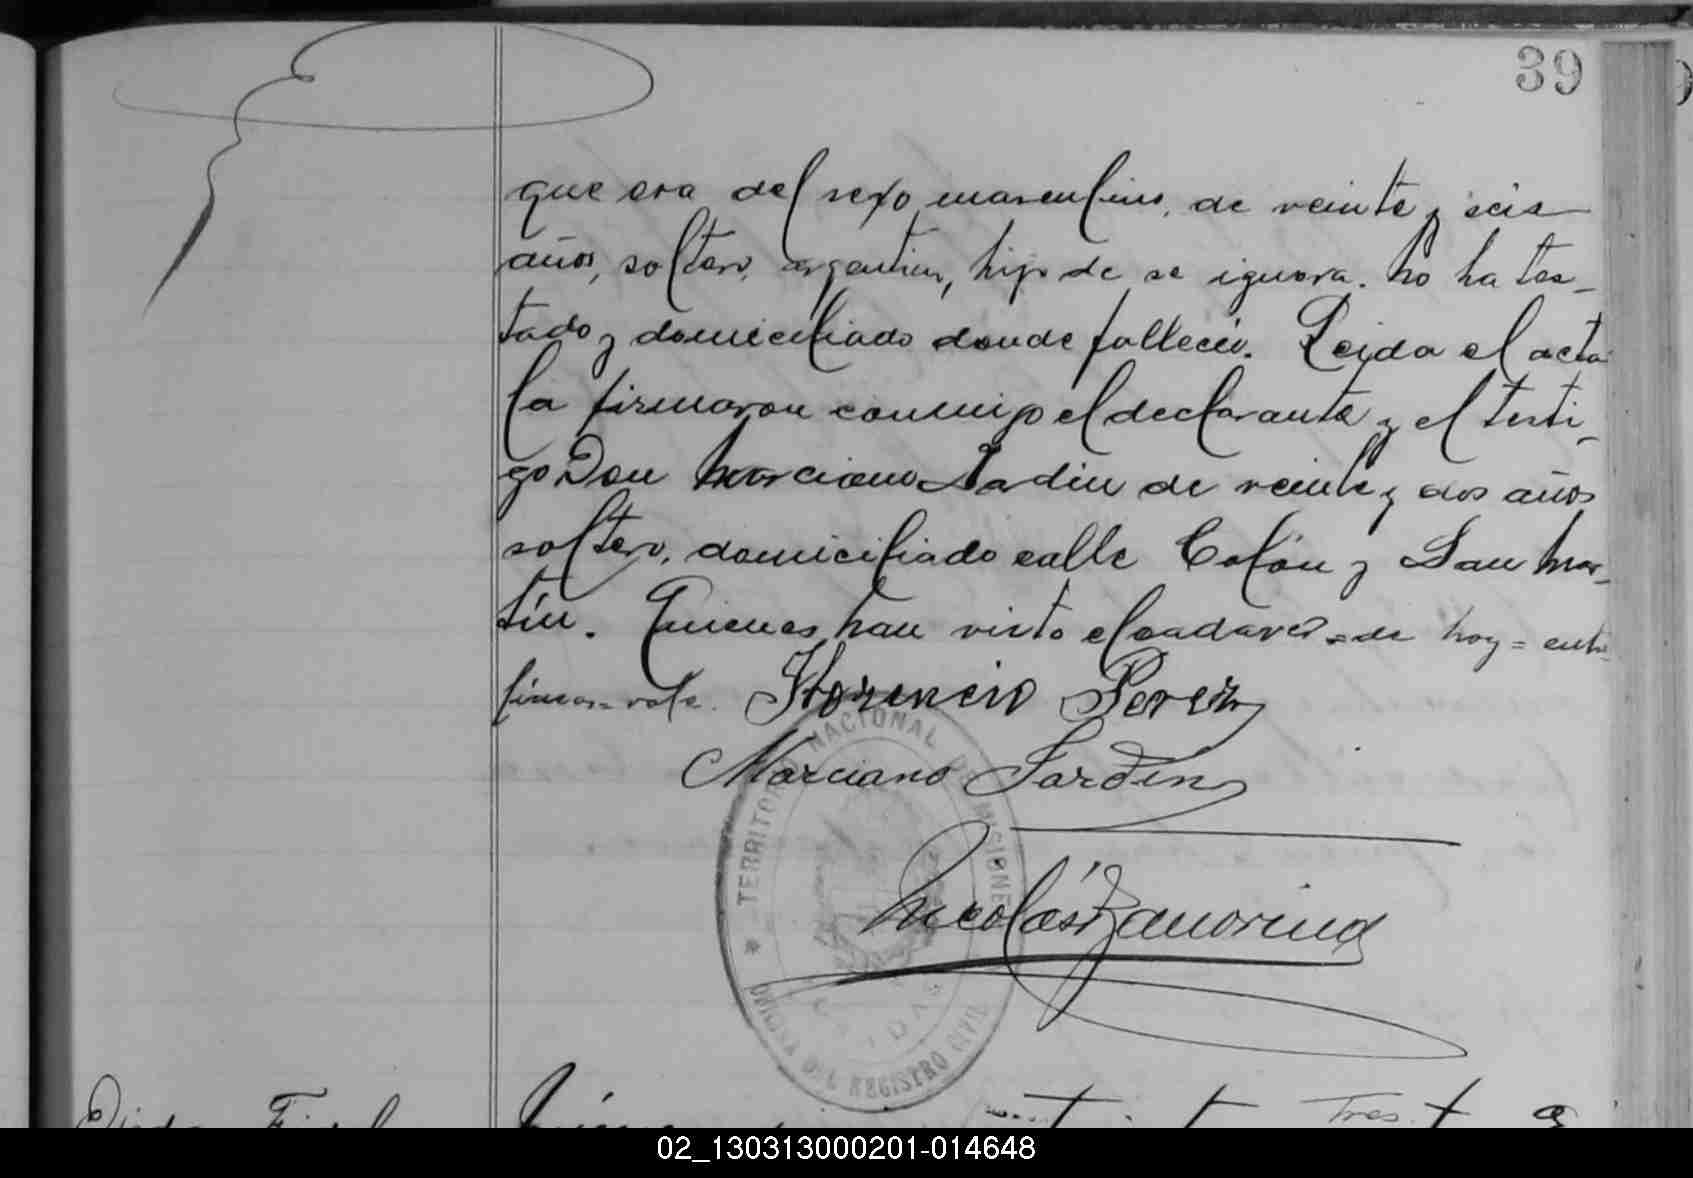 39
que era del sexo masculino, de veinte y seis
años, soltero, argentino, hijo de se ignora. No ha tes-
tado y domiciliado donde falleció. Leida el acta
la firmaron conmigo el declarante y el testi-
go Don Marciano Sardin de veinte y dos años
soltero, domiciliado calle Colón y San Mar-
tín. Quienes han visto el cadaver = de hoy = entre
lineas = vale. Florencio Perez
Marciano Sardin
TERRITORIO NACIONAL DE MISIONES
Nicolás Zamorina
OFICINA DEL REGISTRO CIVIL
02_130313000201-014648